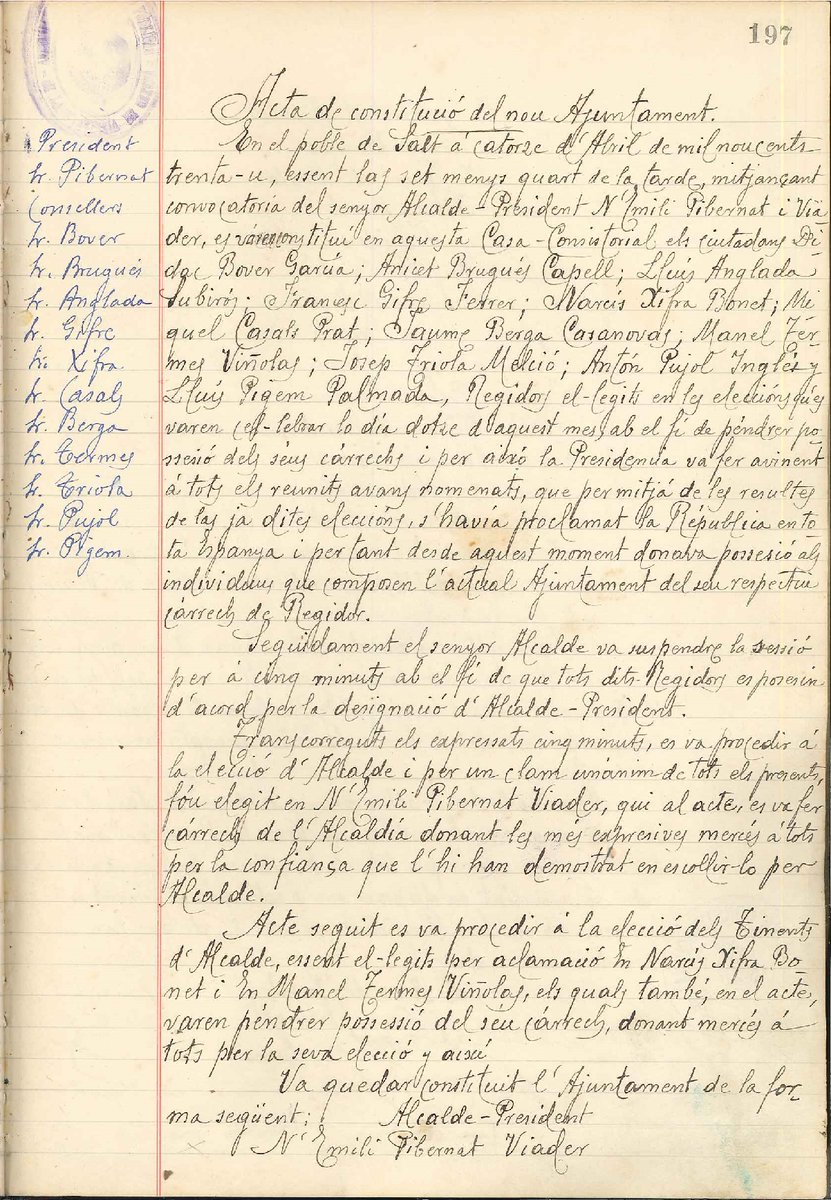 197
Acta de constitució del nou Ajuntament.
President
Sr. Pibernat
Consellers
Sr. Bover
Sr. Brugués
Sr. Anglada
Sr. Gifre
Sr. Xifra
Sr. Casals
Sr. Berga
Sr. Termes
Sr. Triola
Sr. Pujol
Sr. Pigem.
En el poble de Salt á catorze d'Abril de mil noucents
trenta-u, essent las set menys quart de la tarde, mitjançant
convocatoria del senyor Alcalde-President N'Emili Pibernat i Via-
der, es varen constituir en aquesta Casa-Consistorial els ciutadans Di-
dac Bover Garcia; Anicet Brugués Capell; Lluis Anglada
Subirós; Francesc Gifre Ferrer; Narcís Xifra Bonet; Mi-
quel Casals Prat; Jaume Berga Casanovas; Manel Tér-
mes Viñolas; Josep Triola Melció; Antón Pujol Inglés y
Lluís Pigem Palmada, Regidors el-legits en les eleccións ques
varen cel-lebrar lo día dotze d'aquest mes, ab el fi de péndrer po-
ssesió dels séus cárrechs i per aixó la Presidencia va fer avinent
á tots els reunits avans nomenats, que per mitjá de les resultes
de las ja dites eleccións, s'havía proclamat la República en to-
ta Espanya i per tant desde aquest moment donava possesió als
individuus que composen l'actual Ajuntament del seu respectiu
cárrech de Regidor.
Seguidament el senyor Alcalde va suspendre la sessió
per á cinq minuts ab el fi de que tots dits Regidors es posesin
d'acord per la designació d'Alcalde-President.
Transcorreguts els expressats cinq minuts, es va procedir á
la elecció d'Alcalde i per un clam unánim de tots els presents,
fóu elegit en N'Emili Pibernat Viader, qui al acte, es va fer
cárrech de l'Alcaldía donant les més expresives mercés á tots
per la confiança que l'hi han demostrat en escollir-lo per
Alcalde.
Acte seguit es va procedir á la elecció dels Tinents
d'Alcalde, essent el-legits per aclamació En Narcís Xifra Bo-
net i En Manel Termes Viñolas, els quals també, en el acte,
varen péndrer possessió del séu cárrech, donant mercés á
tots per la seva elecció y aixís
Va quedar constituit l'Ajuntament de la for-
ma següent: Alcalde-President
N'Emili Pibernat Viader